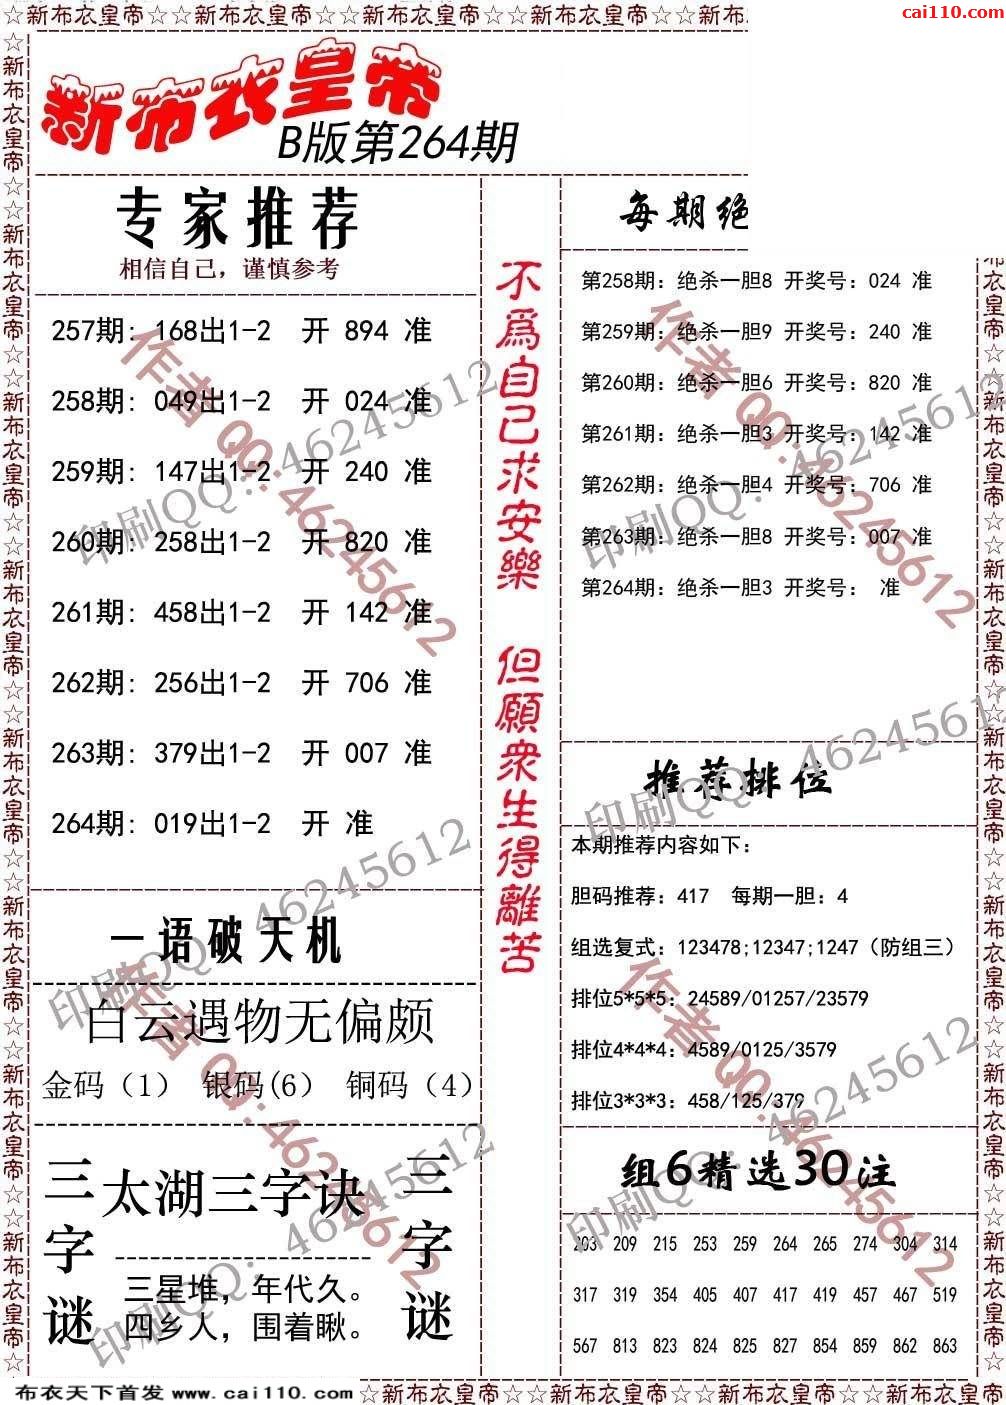 ☆新布衣皇帝☆☆新布衣皇帝☆☆新布衣皇帝☆☆新布衣皇帝☆☆新布
cai110.com
新布衣皇帝
B版第264期
专家推荐
相信自己，谨慎参考
257期: 168出1-2 开 894 准
258期: 049出1-2 开 024 准
259期: 147出1-2 开 240 准
260期: 258出1-2 开 820 准
261期: 458出1-2 开 142 准
262期: 256出1-2 开 706 准
263期: 379出1-2 开 007 准
264期: 019出1-2 开 准
一语破天机
白云遇物无偏颇
金码（1） 银码(6） 铜码（4）
三字谜
太湖三字诀
三星堆，年代久。
四乡人，围着瞅。
三字谜
不為自己求安樂 但願衆生得離苦
每期绝
第258期: 绝杀一胆8 开奖号: 024 准
第259期: 绝杀一胆9 开奖号: 240 准
第260期: 绝杀一胆6 开奖号: 820 准
第261期: 绝杀一胆3 开奖号: 142 准
第262期: 绝杀一胆4 开奖号: 706 准
第263期: 绝杀一胆8 开奖号: 007 准
第264期: 绝杀一胆3 开奖号: 准
推荐排位
本期推荐内容如下:
胆码推荐: 417 每期一胆: 4
组选复式: 123478;12347;1247（防组三）
排位5*5*5: 24589/01257/23579
排位4*4*4: 4589/0125/3579
排位3*3*3: 458/125/379
组6精选30注
203 209 215 253 259 264 265 274 304 314
317 319 354 405 407 417 419 457 467 519
567 813 823 824 825 827 854 859 862 863
作者 QQ:46245612
印刷QQ: 46245612
作者 QQ:46245612
印刷QQ: 46245612
印刷QQ: 46245612
印刷QQ: 46245612
作者 QQ:46245612
印刷QQ: 46245612
作者 QQ:46245612
印刷QQ: 46245612
布衣天下首发 www.cai110.com
☆新布衣皇帝☆☆新布衣皇帝☆☆新布衣皇帝☆☆新布衣皇帝☆